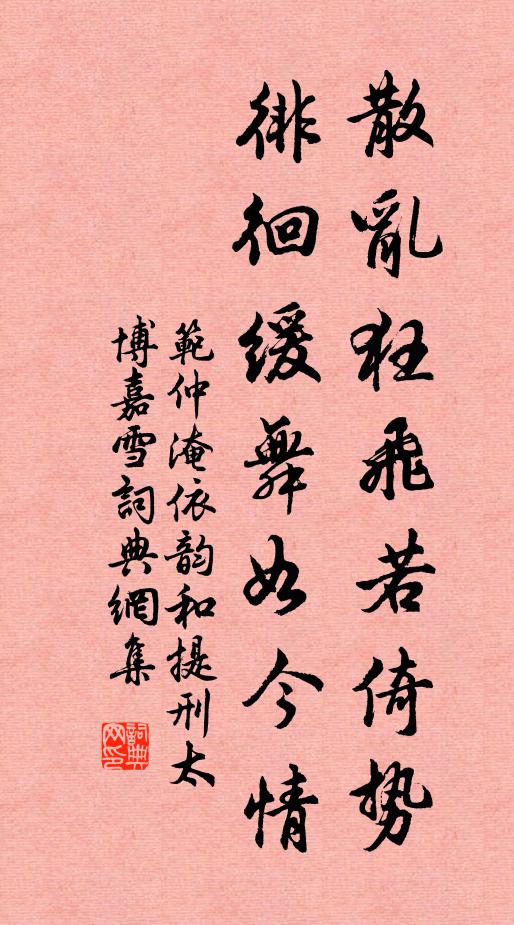 散亂狂飛若倚势
徘徊緩舞如今情
範仲淹依韵和提刑太
博嘉雪詞典網集
詞典网印